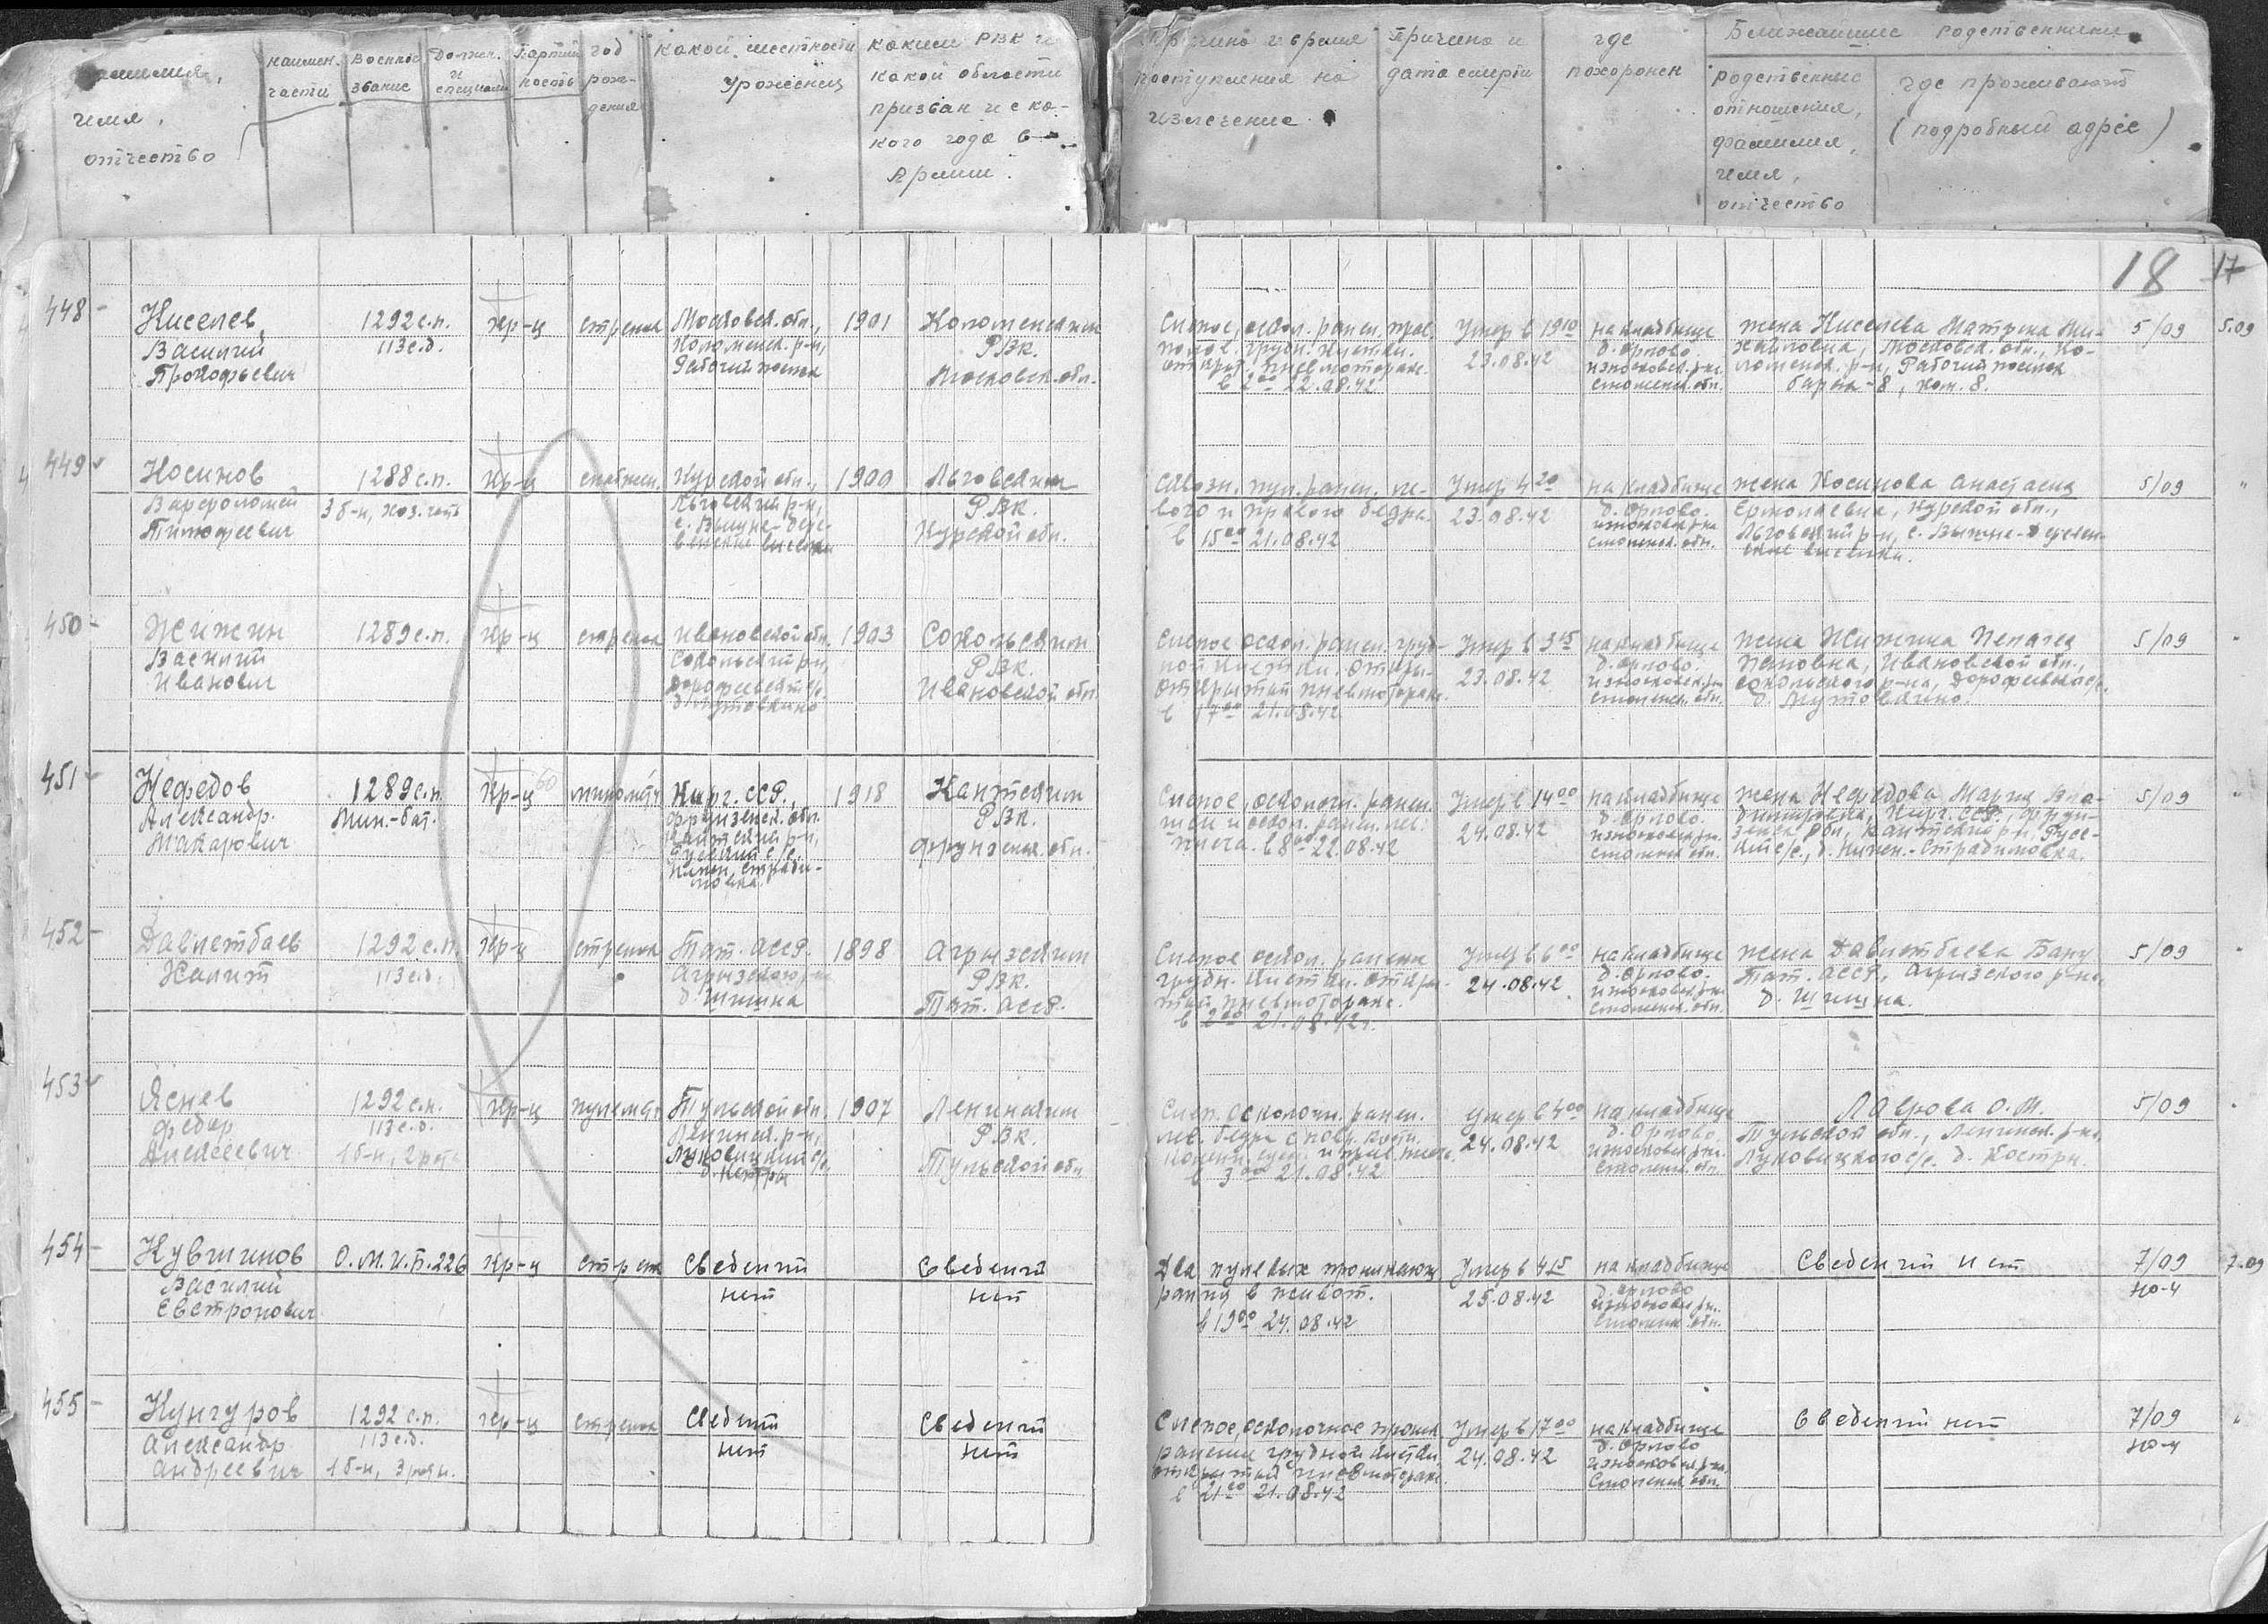 Фамилия,
имя,
отчество
наимен.
части
Военное
звание
Должн.
и
специальн.
Партий
ность
год
рож-
дения
какой местности
урожениц
каким РВК и
какой области
призван и с ка-
кого года в
Армии.
Причина и время
поступления на
излечение.
Причина и
дата смерти
где
похоронен
Ближайшие родственники
родственные
отношения,
фамилия,
имя,
отчество
где проживают
(подробный адрес)
18 17
448 -
Киселев,
Василий
Прокофьевич
1292 с.п.
113 с.д.
кр-ц
стрелок
Московск. обл.,
Коломенск. р-н,
Рабочий поселок
1901
Коломенским
РВК.
Московск. обл.
Слепое, оскол. ранен. прав.
полов. грудн. клетки.
открыт. пневмоторакс.
в 2⁰⁰ 22.08.42
Умер в 19¹⁰
23.08.42
на кладбище
д. Орлово.
Износковск. р-на.
Смоленск. обл.
жена Киселева Матрена Ми-
хайловна, Московск. обл., Ко-
ломенск. р-н, Рабочий поселок
барак-8, ком. 8.
5/09
5.09
449
Косинов
Варфоломей
Тимофеевич
1288 с.п.
3 б-н, хоз. часть
кр-ц
снабжен.
Курской обл.,
Льговский р-н,
1900
Льговским
РВК.
Курской обл.
Сквозн. пул. ранен. ле-
вого и правого бедра.
в 15⁰⁰ 21.08.42
Умер 4²⁰
23.08.42
на кладбище
д. Орлово.
Износковск. р-на
Смоленск. обл.
жена Косинова Анастасия
Ермолаевна, Курской обл.,
Льговский р-н, с.
5/09
"
450 -
Жижин
Василий
Иванович
1289 с.п.
кр-ц
стрелок
Ивановской обл.
Сокольский р-н,
Дорофеевск. с/с.
1903
Сокольским
РВК.
Ивановской обл.
Слепое оскол. ранен. груд-
ной клетки. Откры-
открытый пневмоторакс.
в 17⁰⁰ 21.08.42
Умер в 3¹⁵
23.08.42
на кладбище
д. Орлово.
Износковск. р-н
Смоленск. обл.
жена Жижина Пелагея
Ивановской обл.,
Сокольского р-на, Дорофеевск. с/с.
5/09
"
451
Нефедов
Александр.
Макарович
1289 с.п.
Мин.-бат.
кр-ц 60
минометч
Кирг. ССР.,
Фрунзенск. обл.
Кантский р-н,
1918
Кантским
РВК.
Фрунзенск. обл.
Слепое, осколочн. ранен.
шеи и оскол. ранен. лев.
плеча. в 8⁰⁰ 22.08.42
Умер в 14⁰⁰
24.08.42
на кладбище
д. Орлово.
Износковск. р-н.
Смоленск. обл.
жена Нефедова Мария Вла-
димировна, Кирг. ССР., Фрун-
зенск. обл., Кантский р-н,
5/09
"
452 -
Давлетбаев
Халит
1292 с.п.
113 с.д.
кр-ц
стрелок
Тат. АССР.
Агрызского р-на
д. Шишна
1898
Агрызским
РВК.
Тат. АССР.
Слепое оскол. ранение
грудн. клетки. откры-
тый пневмоторакс.
в 2⁰⁰ 21.08.42 г.
Умер в 6⁰⁰
24.08.42
на кладбище
д. Орлово.
Износковск. р-на
Смоленск. обл.
жена Давлетбаева Бану
Тат. АССР, Агрызского р-на,
д. Шишна.
5/09
"
453
Яснев
Федор
Алексеевич
1292 с.п.
113 с.д.
1 б-н, 2 рота
кр-ц
пулеметч
Тульской обл.
Ленинск. р-н,
Луковицкий с/с,
д. Костры
1907
Ленинским
РВК.
Тульской обл
Слеп. осколочн. ранен.
лев. бедра с повр. кости.
в 3⁰⁰ 21.08.42
Умер в 4⁰⁰
24.08.42
на кладбище
д. Орлово.
Износковск. р-на.
Смоленск. обл.
Лаврова О.М.
Тульской обл., Ленинск. р-на,
Луковицкого с/с. д. Костры.
5/09
"
454 -
Кувшинов
Василий
Евстропович
О.М.И.Б. 226
кр-ц
стрелок
Сведений
нет
Сведений
нет
Два пулевых проникающ
ранения в живот.
в 19⁰⁰ 24.08.42
Умер в 4¹⁵
25.08.42
на кладбище
д. Орлово
Износковск. р-н.
Смоленск. обл.
Сведений нет
7/09
7.09
455 -
Кунгуров
Александр
Андреевич
1292 с.п.
113 с.д.
1 б-н, 3 рота.
кр-ц
стрелок
Сведений
нет
Сведений
нет
Слепое, осколочное проник
ранение грудной клетки.
открытый пневмоторакс.
в 21⁰⁰ 21.08.42
Умер в 17⁰⁰
24.08.42
на кладбище
д. Орлово
Износковск. р-на.
Смоленск. обл.
Сведений нет
7/09
"